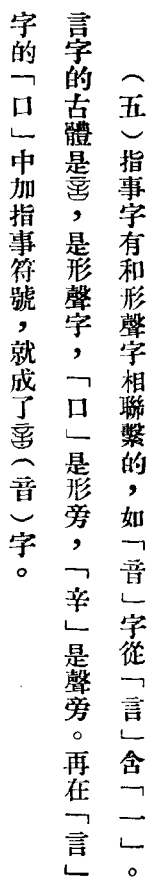 （五）指事字有和形聲字相聯繫的，如「音」字從「言」含「一」。
言字的古體是𢍉，是形聲字，「口」是形旁，「䇂」是聲旁。再在「言」
字的「口」中加指事符號，就成了（音）字。